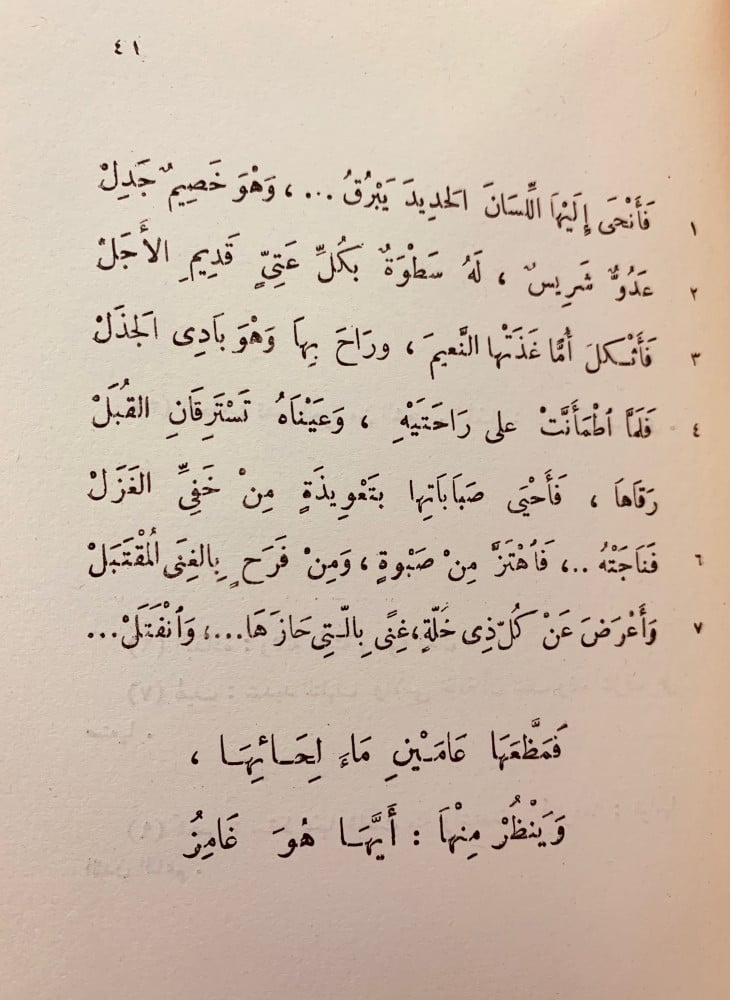 ٤١
١ فَأَنْحَى إِلَيْهَا اللِّسَانَ الحَدِيدَ يَبْرُقُ ... ، وَهْوَ خَصِيمٌ جَدِلْ
٢ عَدُوٌّ شَرِيسٌ ، لَهُ سَطْوَةٌ بِكُلِّ عَتِيٍّ قَدِيمِ الأَجَلْ
٣ فَأَثْكلَ أُمًّا غَذَتْها النَّعيمَ ، وراَحَ بِهاَ وَهْوَ بَادِى الجَذَلْ
٤ فَلَمَّا ٱطْمَأَنَّتْ على رَاحَتَيْهِ ، وَعَيْنَاهُ تَسْتَرِقَانِ القُبَلْ
رَقَاهَا ، فَأَحْيَى صَبَابَاتِها بِتَعْوِيذَةٍ مِنْ خَفِيِّ الغَزَلْ
٦ فَنَاجَتْهُ ..، فَٱهْتَزَّ مِنْ صَبْوةٍ ، وَمِنْ فَرَحٍ بِالغِنَى المُقْتَبَلْ
٧ وَأَعْرَضَ عَنْ كُلِّ ذِى خَلّةٍ ،غِنًى بِالَّتِى حَازَهَا...، وَٱنْفَتَلْ...
فَمَظَّعَهَا عَامَيْنِ مَاءَ لِحَائِهَا ،
وَيَنْظُرْ مِنْهَا : أَيَّهَا هُوَ غَامِزُ